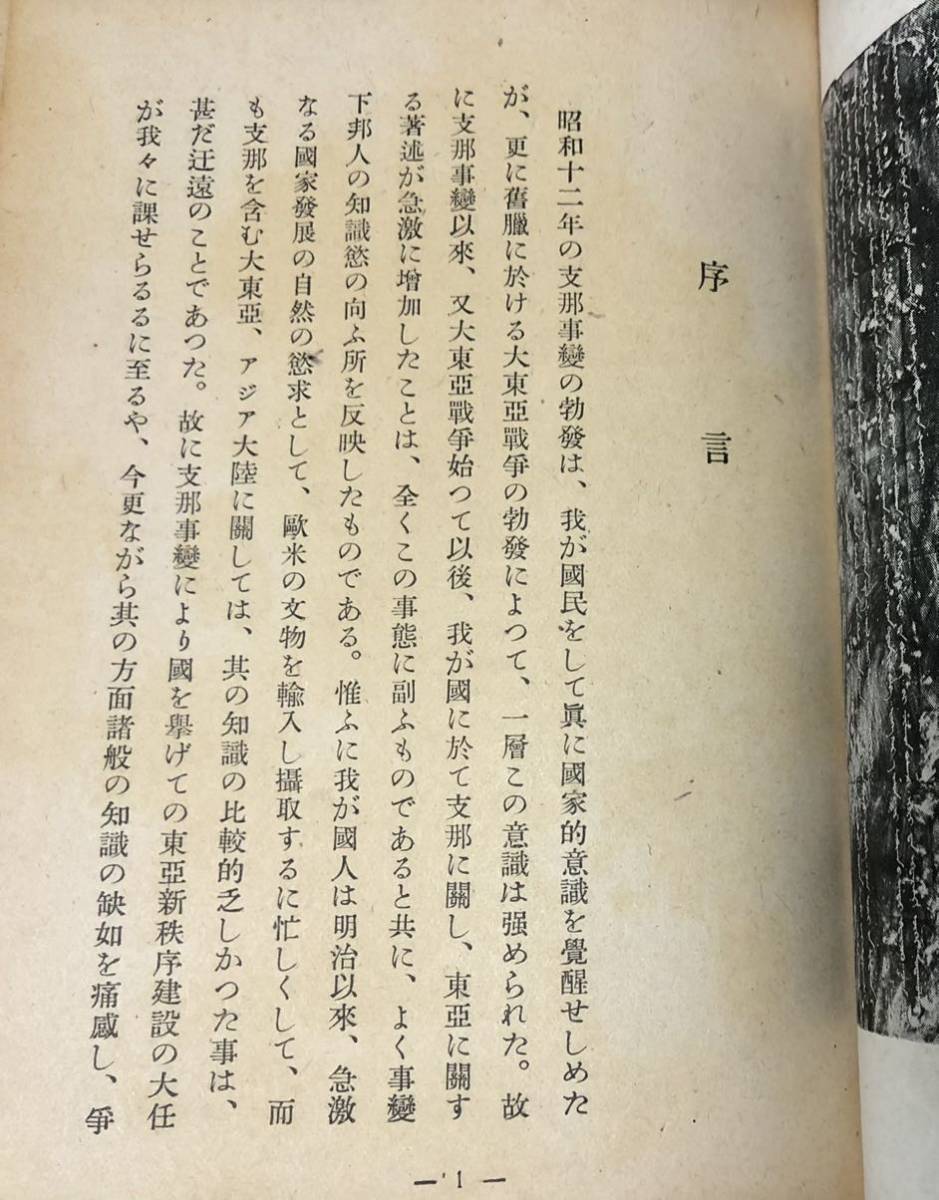 序言
昭和十二年の支那事變の勃發は、我が國民をして眞に國家的意識を覺醒せしめた
が、更に舊臘に於ける大東亞戰爭の勃發によつて、一層この意識は强められた。故
に支那事變以來、又大東亞戰爭始つて以後、我が國に於て支那に關し、東亞に關す
る著述が急激に增加したことは、全くこの事態に副ふものであると共に、よく事變
下邦人の知識慾の向ふ所を反映したものである。惟ふに我が國人は明治以來、急激
なる國家發展の自然の慾求として、歐米の文物を輸入し攝取するに忙しくして、而
も支那を含む大東亞、アジア大陸に關しては、其の知識の比較的乏しかつた事は、
甚だ迂遠のことであつた。故に支那事變により國を擧げての東亞新秩序建設の大任
が我々に課せらるるに至るや、今更ながら其の方面諸般の知識の缺如を痛感し、爭
— 1 —